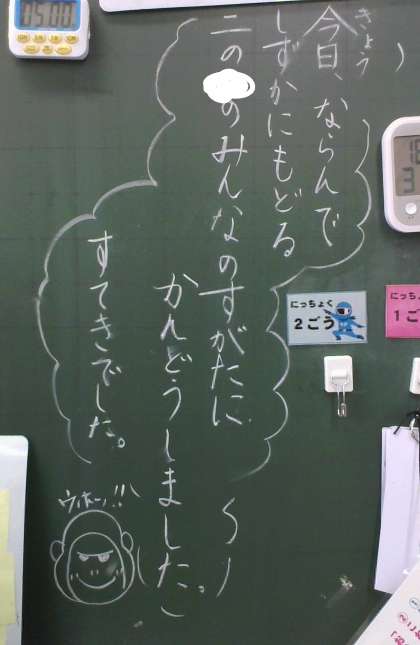 きょう
今日、ならんで
しずかにもどる
二ののみんなのすがたに
かんどうしました。
すてきでした。
ウホーッ!!
05:00
にっちょく
2ごう
にっちょ
1ご